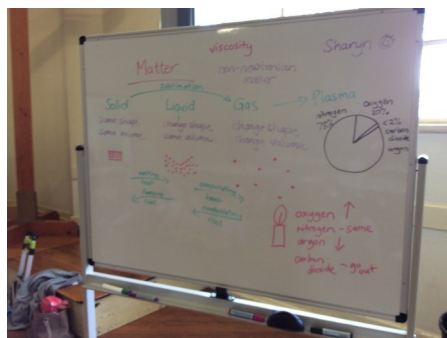 viscosity
Sharyn
Matter
non-newtonian
matter
sublimation
Solid
Liquid
Gas
Plasma
same shape
same volume
change shape
same volume
change shape
change volume
nitrogen
oxygen
carbon
dioxide
argon
melting
heat
freezing
evaporating
heat
condensation
oxygen ↑
nitrogen - same
argon ↓
carbon
dioxide - go out